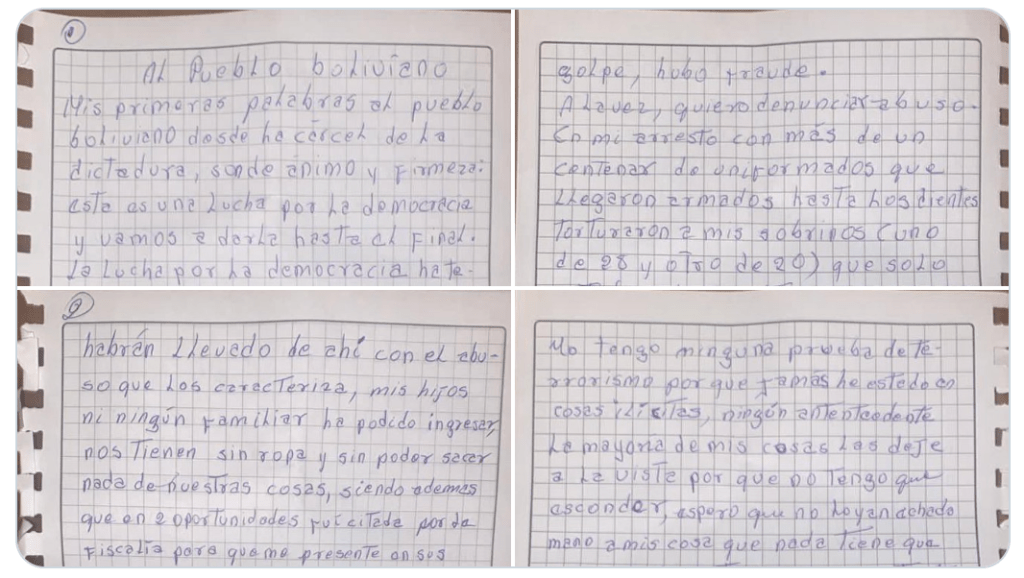 1
Al Pueblo boliviano
Mis primeras palabras al pueblo
boliviano desde la cárcel de la
dictadura, son de ánimo y firmeza:
esta es una lucha por la democracia
y vamos a darla hasta el final.
La lucha por la democracia la te-
golpe, hubo fraude.
A la vez, quiero denunciar abuso.
En mi arresto con más de un
centenar de uniformados que
llegaron armados hasta los dientes
Torturaron a mis sobrinos (uno
de 28 y otro de 20) que solo
2
habrán llevado de ahí con el abu-
so que los caracteriza, mis hijos
ni ningún familiar ha podido ingresar,
nos tienen sin ropa y sin poder sacar
nada de nuestras cosas, siendo además
que en 2 oportunidades fui citada por la
Fiscalía para que me presente en sus
No tengo ninguna prueba de te-
rrorismo por que jamás he estado en
cosas ilícitas, ningún
La mayoria de mis cosas las deje
a la vista por que no tengo que
esconder, espero que no hayan achado
mano a mis cosa que nada tiene que